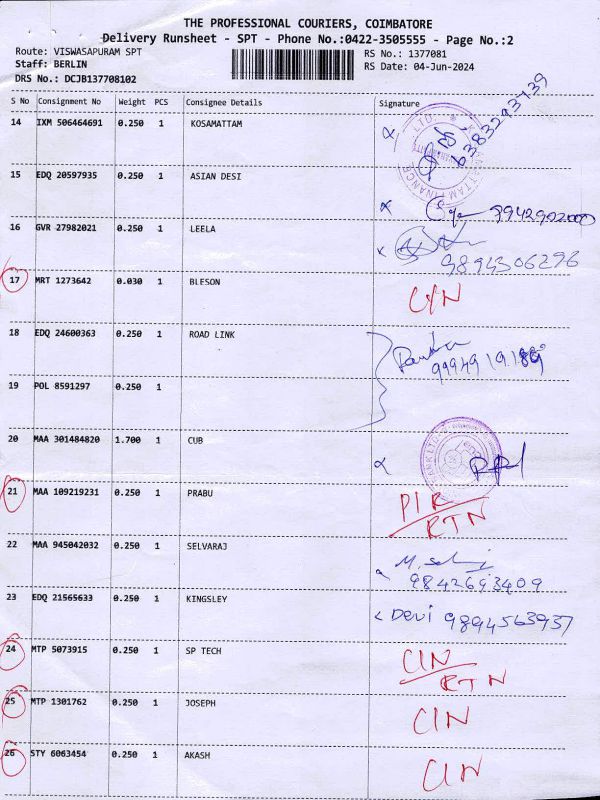 THE PROFESSIONAL COURIERS, COIMBATORE
Delivery Runsheet - SPT - Phone No.:0422-3505555 - Page No.:2
Route: VISWASAPURAM SPT
RS No.: 1377081
Staff: BERLIN
RS Date: 04-Jun-2024
DRS No.: DCJB137708102
S No Consignment No Weight PCS Consignee Details Signature
14 IXM 506464691 0.250 1 KOSAMATTAM
6383293439
15 EDQ 20597935 0.250 1 ASIAN DESI
16 GVR 27982021 0.250 1 LEELA
9894506296
17 MRT 1273642 0.030 1 BLESON
18 EDQ 24600363 0.250 1 ROAD LINK
19 POL 8591297 0.250 1
20 MAA 301484820 1.700 1 CUB
21 MAA 109219231 0.250 1 PRABU PIR
RTN
22 MAA 945042032 0.250 1 SELVARAJ
9842693409
23 EDQ 21565633 0.250 1 KINGSLEY Devi 9894563937
24 MTP 5073915 0.250 1 SP TECH CIN
RTN
25 MTP 1301762 0.250 1 JOSEPH CIN
26 STY 6063454 0.250 1 AKASH CIN